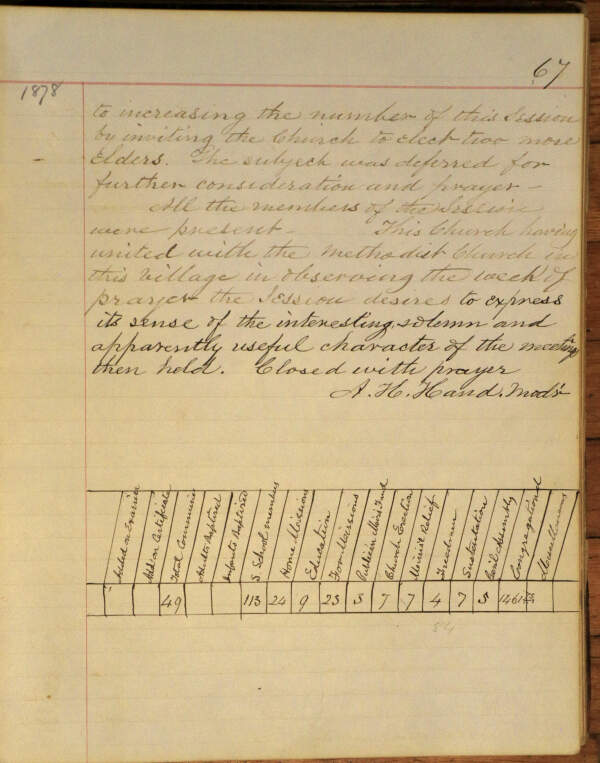 67
1878
to increasing the number of this Session
by inviting the Church to elect two more
Elders. The subject was deferred for
further consideration and prayer -
All the members of the Session
were present - This Church having
united with the Methodist Church in
this village in observing the week of
prayer the Session desires to express
its sense of the interesting, solemn and
apparently useful character of the meetings
then held. Closed with prayer
A. H. Hand. Mod'r
Added on Examin
Added on Certificate
Total Communic
Adults Baptized
Infants Baptized
S. School members
Home Missions
Education
For. Missions
Church Erection
Minist Relief
Freedmen
Sustentation
Gen'l Assembly
Congregational
Miscellaneous
49 113 24 9 23 5 7 7 4 7 5
84